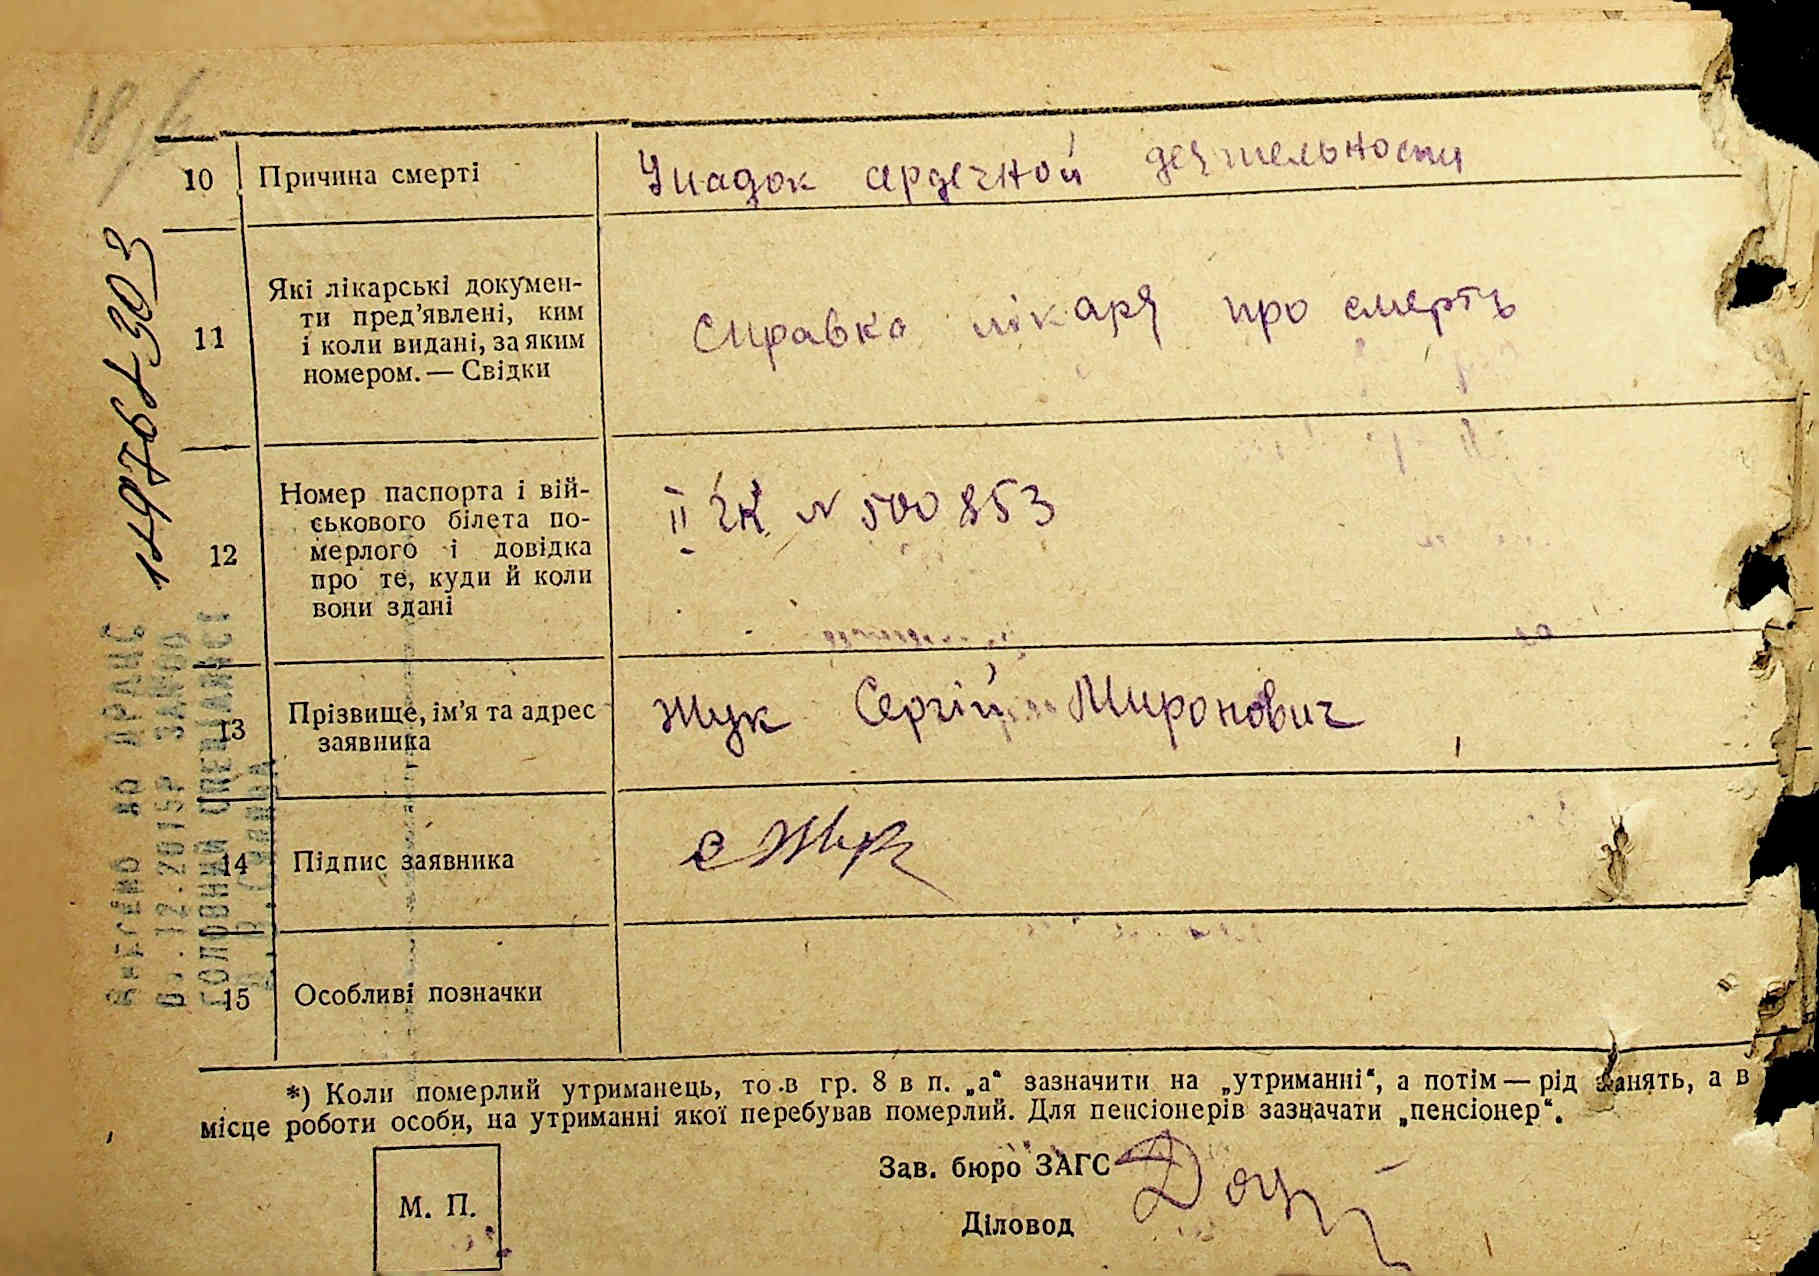 10 Причина смерті Упадок сердечной деятельности
11 Які лікарські докумен-
ти пред'явлені, ким
і коли видані, за яким
номером. — Свідки
Справка лікаря про смерть
12 Номер паспорта і вій-
ськового білета по-
мерлого і довідка
про те, куди й коли
вони здані
II ЧК № 500853
13 Прізвище, ім'я та адрес
заявника
Жук Сергій Миронович
14 Підпис заявника С Жук
15 Особливі позначки
*) Коли померлий утриманець, то в гр. 8 в п. „а“ зазначити на „утриманні“, а потім — рід занять, а в
місце роботи особи, на утриманні якої перебував померлий. Для пенсіонерів зазначати „пенсіонер“.
Зав. бюро ЗАГС
М. П.
Діловод